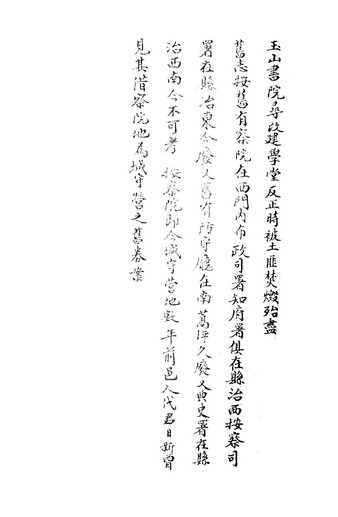 玉山書院尋改建學堂反正時被土匪焚燬殆盡
舊志按舊有察院在西門內布政司署知府署俱在縣治西按察司
署在縣治東今廢又舊有防守廳在南蒿坪久廢又典史署在縣
治西南今不可考 按察院即今城守營地數年前邑人代君日新曾
見其借察院地為城守營之舊券業